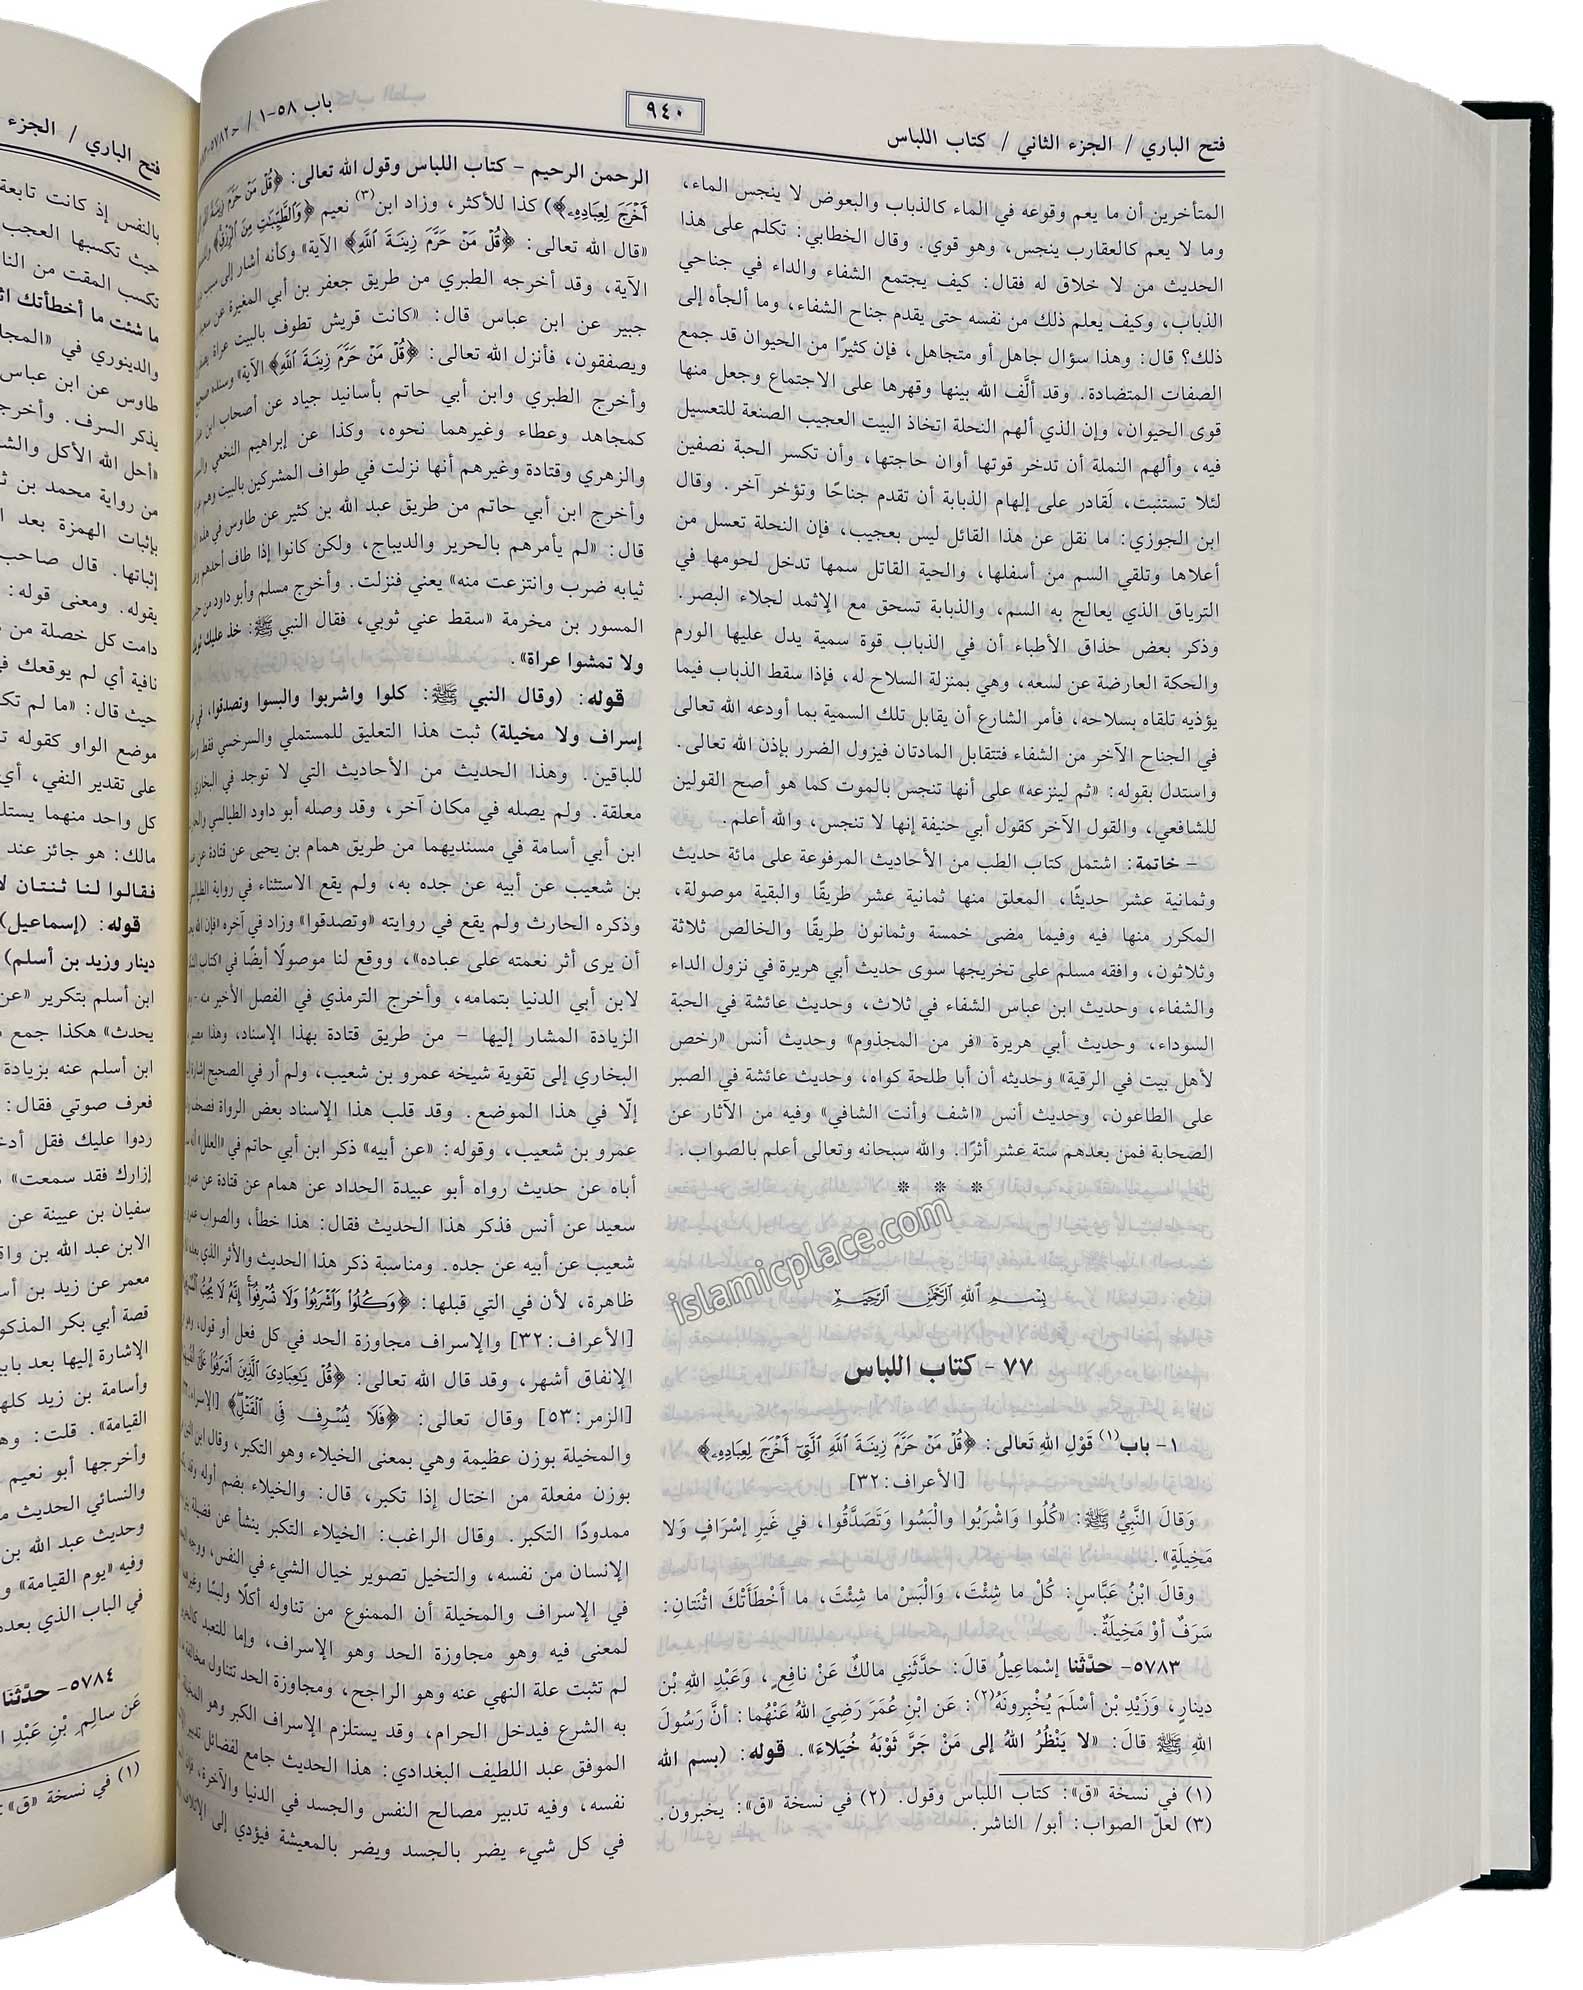 فتح الباري / الجزء الثاني / كتاب اللباس
٩٤٠
باب ٥٨-١ / ح ٥٧٨٢-
المتأخرين أن ما يعم وقوعه في الماء كالذباب والبعوض لا ينجس الماء،
وما لا يعم كالعقارب ينجس، وهو قوي. وقال الخطابي: تكلم على هذا
الحديث من لا خلاق له فقال: كيف يجتمع الشفاء والداء في جناحي
الذباب، وكيف يعلم ذلك من نفسه حتى يقدم جناح الشفاء، وما ألجأه إلى
ذلك؟ قال: وهذا سؤال جاهل أو متجاهل، فإن كثيرًا من الحيوان قد جمع
الصفات المتضادة. وقد ألَّف الله بينها وقهرها على الاجتماع وجعل منها
قوى الحيوان، وإن الذي ألهم النحلة اتخاذ البيت العجيب الصنعة للتعسيل
فيه، وألهم النملة أن تدخر قوتها أوان حاجتها، وأن تكسر الحبة نصفين
لئلا تستنبت، لَقادر على إلهام الذبابة أن تقدم جناحًا وتؤخر آخر. وقال
ابن الجوزي: ما نقل عن هذا القائل ليس بعجيب، فإن النحلة تعسل من
أعلاها وتلقي السم من أسفلها، والحية القاتل سمها تدخل لحومها في
الترياق الذي يعالج به السم، والذبابة تسحق مع الإثمد لجلاء البصر.
وذكر بعض حذاق الأطباء أن في الذباب قوة سمية يدل عليها الورم
والحكة العارضة عن لسعه، وهي بمنزلة السلاح له، فإذا سقط الذباب فيما
يؤذيه تلقاه بسلاحه، فأمر الشارع أن يقابل تلك السمية بما أودعه الله تعالى
في الجناح الآخر من الشفاء فتتقابل المادتان فيزول الضرر بإذن الله تعالى.
واستدل بقوله: «ثم لينزعه» على أنها تنجس بالموت كما هو أصح القولين
للشافعي، والقول الآخر كقول أبي حنيفة إنها لا تنجس، والله أعلم.
– خاتمة: اشتمل كتاب الطب من الأحاديث المرفوعة على مائة حديث
وثمانية عشر حديثًا، المعلق منها ثمانية عشر طريقًا والبقية موصولة،
المكرر منها فيه وفيما مضى خمسة وثمانون طريقًا والخالص ثلاثة
وثلاثون، وافقه مسلم على تخريجها سوى حديث أبي هريرة في نزول الداء
والشفاء، وحديث ابن عباس الشفاء في ثلاث، وحديث عائشة في الحبة
السوداء، وحديث أبي هريرة «فر من المجذوم» وحديث أنس «رخص
لأهل بيت في الرقية» وحديثه أن أبا طلحة كواه، وحديث عائشة في الصبر
على الطاعون، وحديث أنس «اشف وأنت الشافي» وفيه من الآثار عن
الصحابة فمن بعدهم ستة عشر أثرًا. والله سبحانه وتعالى أعلم بالصواب.
* * *
بسم الله الرحمن الرحيم
٧٧ - كتاب اللباس
١- باب(١) قَوْلِ اللهِ تَعالى: ﴿قُلْ مَنْ حَرَّمَ زِينَةَ اللَّهِ الَّتِي أَخْرَجَ لِعِبَادِهِ﴾
[الأعراف:٣٢]
وَقالَ النَّبيُّ ﷺ: «كُلُوا وَاشْرَبُوا والْبَسُوا وَتَصَدَّقُوا، في غَيرِ إسْرَافٍ وَلا
مَخِيلَةٍ».
وَقالَ ابْنُ عَبَّاسٍ: كُلْ ما شِئْتَ، وَالْبَسْ ما شِئْتَ، ما أَخْطَأَتْكَ اثْنَتَانِ:
سَرَفٌ أوْ مَخِيلَةٌ.
٥٧٨٣- حدَّثَنا إسْماعِيلُ قالَ: حَدَّثَنِي مالكٌ عَنْ نافِعٍ، وَعَبْدِ اللهِ بْنِ
دِينارٍ، وَزَيْدِ بْنِ أسْلَمَ يُخْبِرونَهُ(٢): عَن ابْنِ عُمَرَ رَضِيَ اللهُ عَنْهُما: أنَّ رَسُولَ
اللهِ ﷺ قالَ: «لا يَنْظُرُ اللهُ إلى مَنْ جَرَّ ثَوْبَهُ خُيَلاءَ». قوله: (بسم الله
(١) في نسخة «ق»: كتاب اللباس وقول. (٢) في نسخة «ق»: يخبرون.
(٣) لعلّ الصواب: أبو/ الناشر.
الرحمن الرحيم – كتاب اللباس وقول الله تعالى: ﴿قُلْ مَنْ حَرَّمَ زِينَةَ
أَخْرَجَ لِعِبَادِهِ﴾) كذا للأكثر، وزاد ابن(٣) نعيم ﴿وَالطَّيِّبَاتِ مِنَ الرِّزْقِ﴾
«قال الله تعالى: ﴿قُلْ مَنْ حَرَّمَ زِينَةَ اللَّهِ﴾ الآية» وكأنه أشار إلى سبب
الآية، وقد أخرجه الطبري من طريق جعفر بن أبي المغيرة عن سعيد
جبير عن ابن عباس قال: «كانت قريش تطوف بالبيت عراة
ويصفقون، فأنزل الله تعالى: ﴿قُلْ مَنْ حَرَّمَ زِينَةَ اللَّهِ﴾ الآية» وسنده صحيح
وأخرج الطبري وابن أبي حاتم بأسانيد جياد عن أصحاب ابن
كمجاهد وعطاء وغيرهما نحوه، وكذا عن إبراهيم النخعي
والزهري وقتادة وغيرهم أنها نزلت في طواف المشركين بالبيت وهم
وأخرج ابن أبي حاتم من طريق عبد الله بن كثير عن طاوس في هذه
قال: «لم يأمرهم بالحرير والديباج، ولكن كانوا إذا طاف أحدهم
ثيابه ضرب وانتزعت منه» يعني فنزلت. وأخرج مسلم وأبو داود من
المسور بن مخرمة «سقط عني ثوبي، فقال النبي ﷺ: خذ عليك
ولا تمشوا عراة».
قوله: (وقال النبي ﷺ: كلوا واشربوا والبسوا وتصدقوا، في
إسراف ولا مخيلة) ثبت هذا التعليق للمستملي والسرخسي فقط
للباقين. وهذا الحديث من الأحاديث التي لا توجد في البخاري
معلقة. ولم يصله في مكان آخر، وقد وصله أبو داود الطيالسي
ابن أبي أسامة في مسنديهما من طريق همام بن يحيى عن قتادة عن
بن شعيب عن أبيه عن جده به، ولم يقع الاستثناء في رواية الطيالسي
وذكره الحارث ولم يقع في روايته «وتصدقوا» وزاد في آخره «فإن الله
أن يرى أثر نعمته على عباده»، ووقع لنا موصولًا أيضًا في «كتاب
لابن أبي الدنيا بتمامه، وأخرج الترمذي في الفصل الأخير منه -
الزيادة المشار إليها – من طريق قتادة بهذا الإسناد، وهذا
البخاري إلى تقوية شيخه عمرو بن شعيب، ولم أر في الصحيح إشارة
إلّا في هذا الموضع. وقد قلب هذا الإسناد بعض الرواة فصحف
عمرو بن شعيب، وقوله: «عن أبيه» ذكر ابن أبي حاتم في «العلل»
أباه عن حديث رواه أبو عبيدة الحداد عن همام عن قتادة عن
سعيد عن أنس فذكر هذا الحديث فقال: هذا خطأ، والصواب
شعيب عن أبيه عن جده. ومناسبة ذكر هذا الحديث والأثر الذي بعده
ظاهرة، لأن في التي قبلها: ﴿وَكُلُوا وَاشْرَبُوا وَلَا تُسْرِفُوا إِنَّهُ لَا يُحِبُّ
[الأعراف:٣٢] والإسراف مجاوزة الحد في كل فعل أو قول، وهو
الإنفاق أشهر، وقد قال الله تعالى: ﴿قُلْ يَاعِبَادِيَ الَّذِينَ أَسْرَفُوا عَلَى
[الزمر:٥٣] وقال تعالى: ﴿فَلَا يُسْرِف فِّي الْقَتْلِ﴾ [الإسراء:
والمخيلة بوزن عظيمة وهي بمعنى الخيلاء وهو التكبر، وقال ابن
بوزن مفعلة من اختال إذا تكبر، قال: والخيلاء بضم أوله وقد
ممدودًا التكبر. وقال الراغب: الخيلاء التكبر ينشأ عن فضيلة
الإنسان من نفسه، والتخيل تصوير خيال الشيء في النفس، ووجه
في الإسراف والمخيلة أن الممنوع من تناوله أكلًا ولبسًا
لمعنى فيه وهو مجاوزة الحد وهو الإسراف، وإما للتعبد
لم تثبت علة النهي عنه وهو الراجح، ومجاوزة الحد تتناول مخالفة
به الشرع فيدخل الحرام، وقد يستلزم الإسراف الكبر وهو المخيلة
الموفق عبد اللطيف البغدادي: هذا الحديث جامع لفضائل تدبير
نفسه، وفيه تدبير مصالح النفس والجسد في الدنيا والآخرة،
في كل شيء يضر بالجسد ويضر بالمعيشة فيؤدي إلى
islamicplace.com
فتح الباري / الجزء
بالنفس إذ كانت تابعة
حيث تكسبها العجب
تكسب المقت من
ما شئت ما أخطأتك
والدينوري في
طاوس عن ابن عباس
يذكر السرف. وأخرج
«أحل الله الأكل
من رواية محمد بن
بإثبات الهمزة بعد
إثباتها. قال صاحب
بقوله. ومعنى قوله:
دامت كل خصلة من
نافية أي لم يوقعك
حيث قال: «ما لم
موضع الواو كقوله
على تقدير النفي، أي
كل واحد منهما
مالك: هو جائز عند
فقالوا لنا ثنتان
قوله: (إسماعيل)
دينار وزيد بن أسلم)
ابن أسلم بتكرير «عن
يحدث» هكذا جمع
ابن أسلم عنه بزيادة
فعرف صوتي فقال:
ردوا عليك فقل
إزارك فقد سمعت»
سفيان بن عيينة عن
الابن عبد الله بن
معمر عن زيد بن
قصة أبي بكر
الإشارة إليها بعد
وأسامة بن زيد
القيامة». قلت:
وأخرجها أبو نعيم
والنسائي الحديث
وحديث عبد الله بن
وفيه «يوم القيامة»
في الباب الذي بعده
٥٧٨٤- حدَّثَنَا
عَن سالِمِ بْنِ عَبْدِ
(١) في نسخة «ق»: